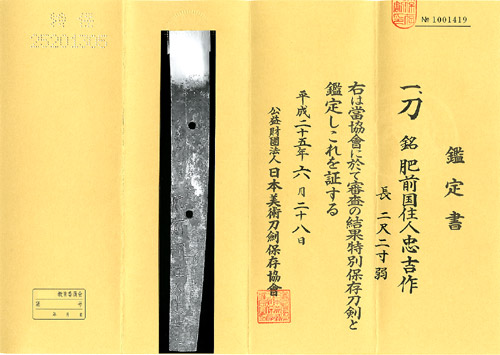 № 1001419
鑑定書
一、刀 銘 肥前国住人忠吉作
長 二尺二寸 弱
右は當協會に於て審査の結果特別保存刀剣と
鑑定しこれを証する
平成二十五年六月二十八日
公益財團法人 日本美術刀剣保存協會
特保
25201306
教育委員会
第 号
年 月 日